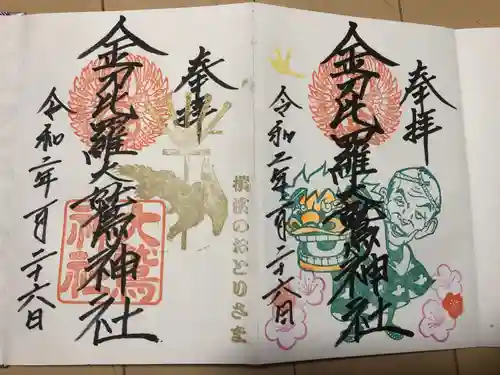 奉拝
金刀比羅大鷲神社
令和二年一月二十六日
大鷲神社
横濱のおとりさま
奉拝
金刀比羅大鷲神社
令和二年一月二十六日